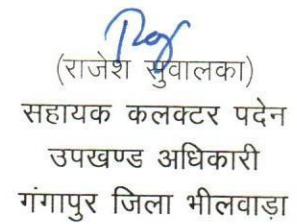 (राजेश सुवालका)
सहायक कलक्टर पदेन
उपखण्ड अधिकारी
गंगापुर जिला भीलवाड़ा